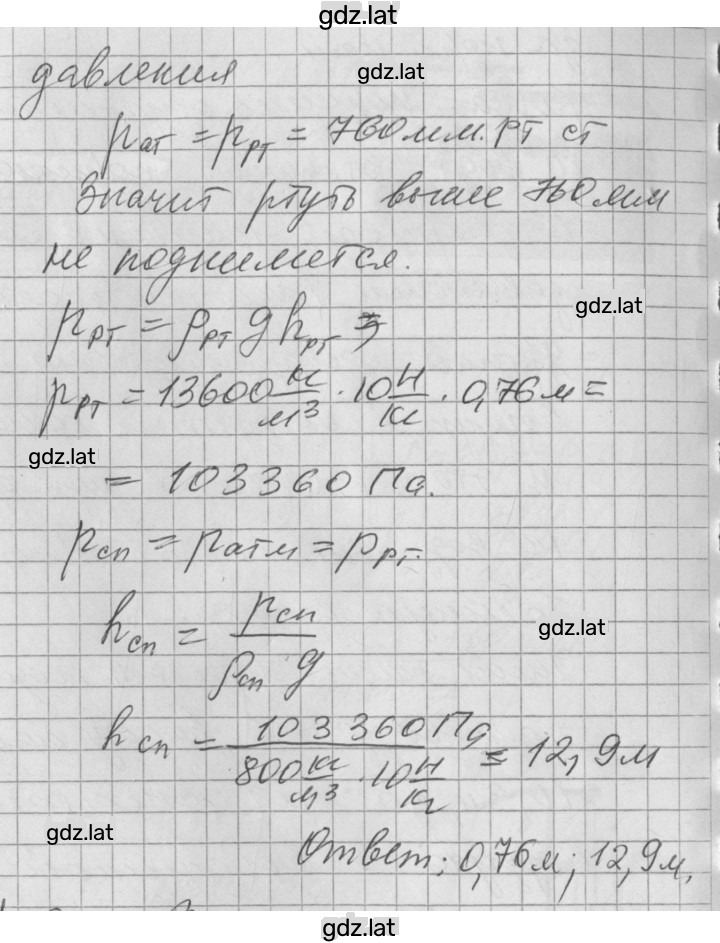 gdz.lat
давления
gdz.lat
pат = pрт = 760 мм. рт ст
Значит ртуть выше 760 мм
не поднимется.
gdz.lat
pрт = ρрт g hрт ⇒
pрт = 13600 кг/м³ · 10 Н/кг · 0,76 м =
gdz.lat
= 103360 Па.
pсп = pатм = pрт.
hсп = pсп / ρсп g
gdz.lat
hсп = 103 360 Па / 800 кг/м³ · 10 Н/кг = 12,9 м
gdz.lat
Ответ: 0,76 м; 12,9 м.
gdz.lat